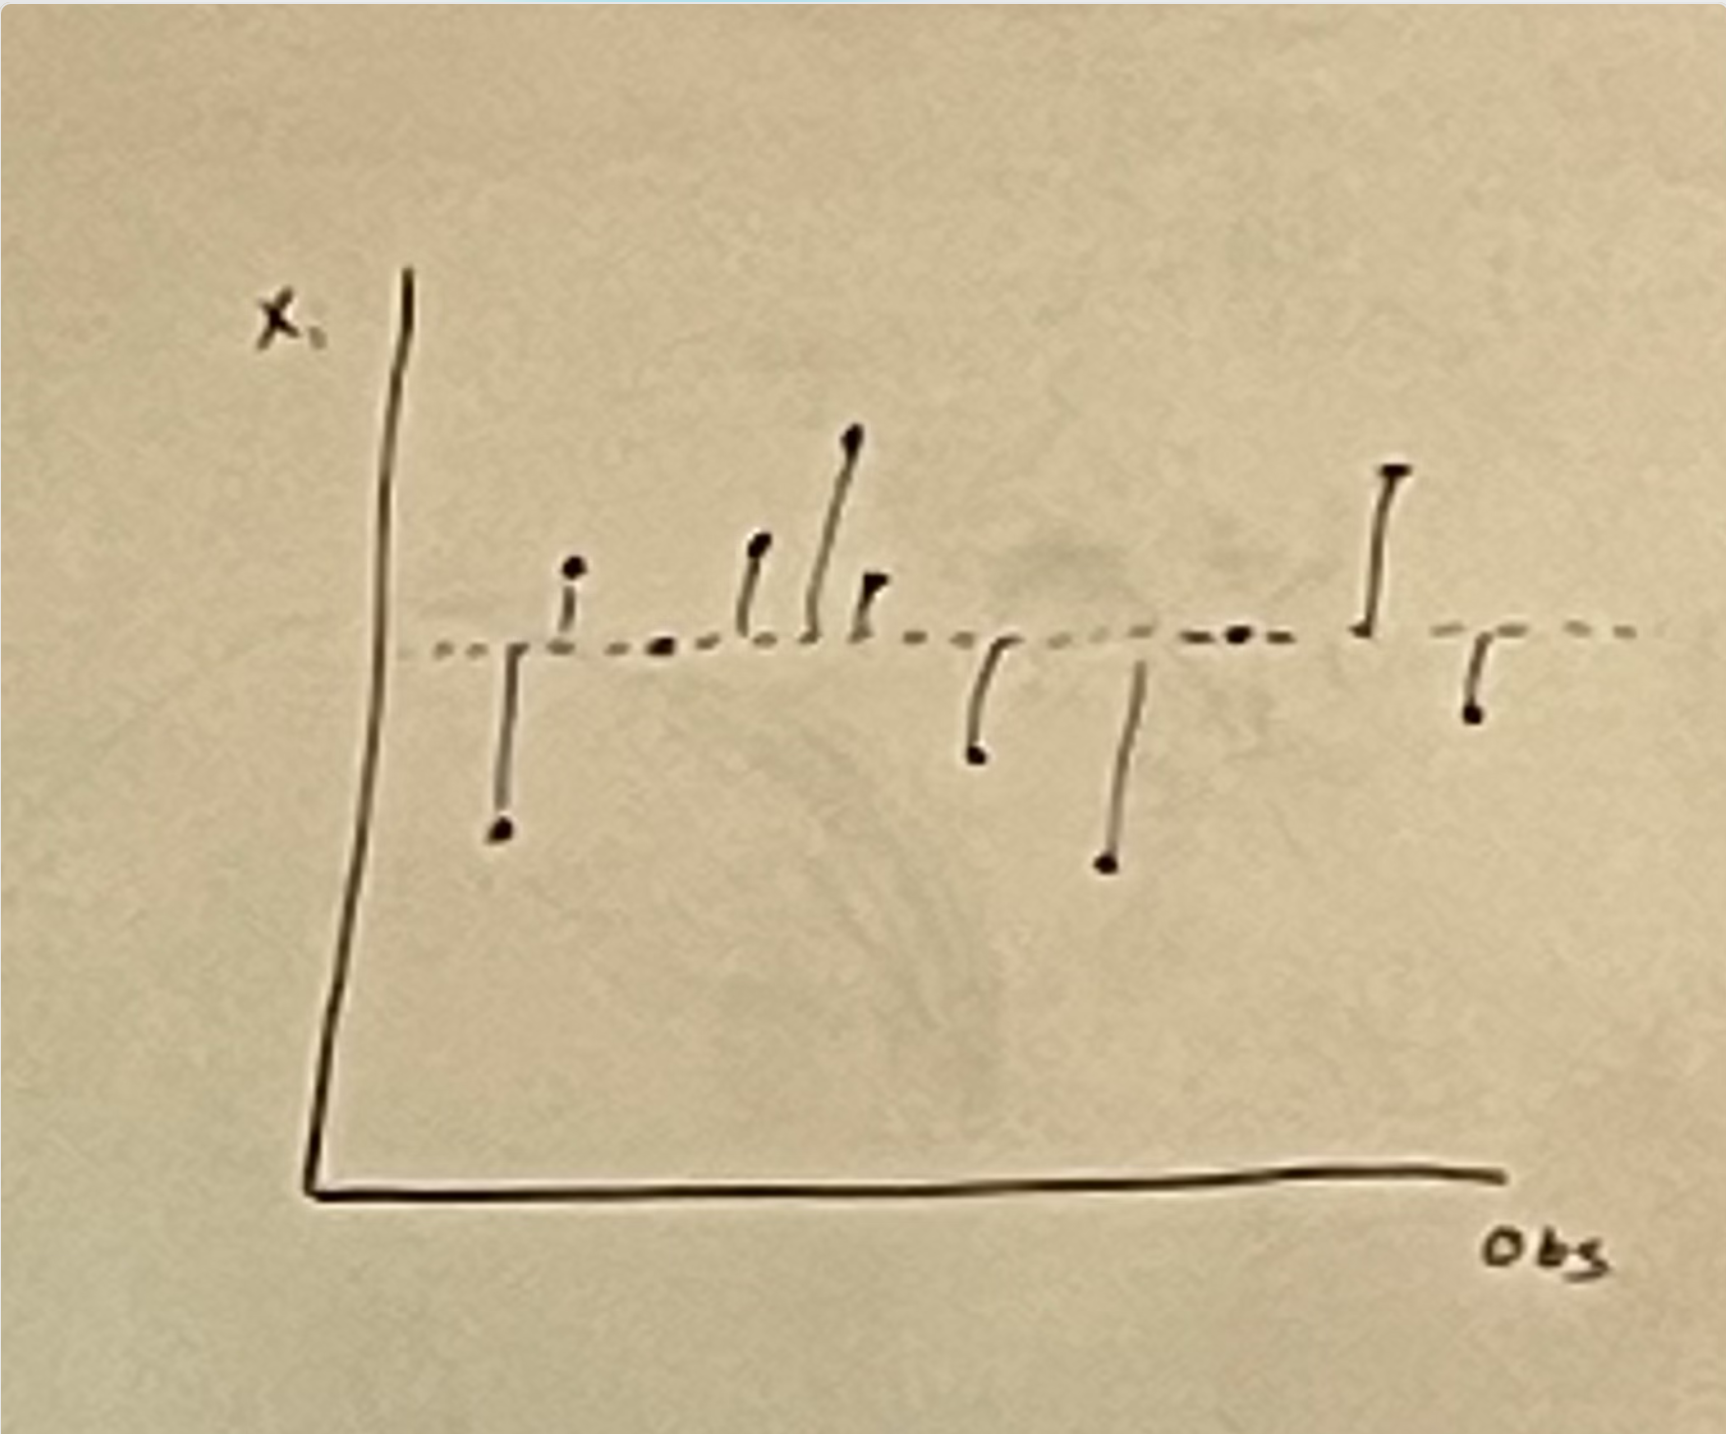 X₁
Obs